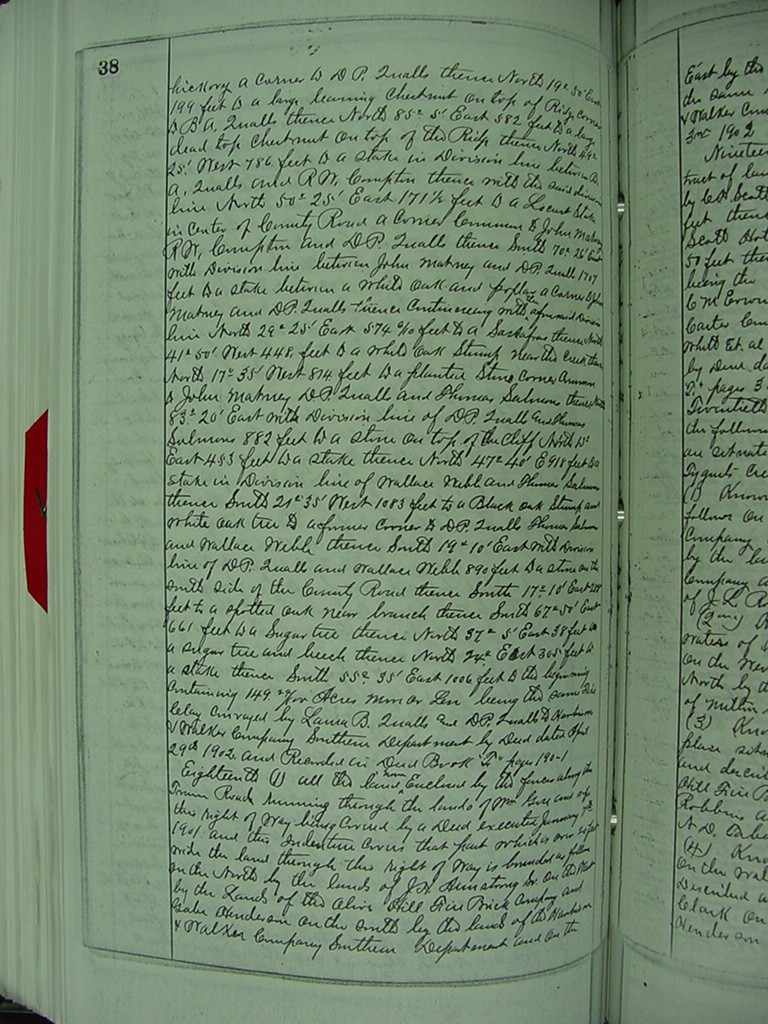 38
hickory a Corner to D.P. Qualls thence North 19° 30' East
199 feet to a large leaning Chestnut on top of Ridge Corner
to B A, Qualls thence North 85° 5' East 582 feet to a large
dead top Chestnut on top of the Ridge thence North 49°
25' West 786 feet to a stake in Division line between B.
A, Qualls and R.W, Compton thence with the said division
line North 50° 25' East 171½ feet to a Locust Stake
in center of County Road a Corner Common to John Matney
R.W, Compton and D.P. Qualls thence South 70° 26' East
with Division line between John Matney and D.P. Qualls 1707
feet to a stake between a white oak and poplar a Corner to John
Matney and D.P. Qualls thence Continueing with the aforesaid Division
line North 29° 25' East 574 feet to a Sassafras thence North
41° 50' West 448 feet to a white oak Stump near the Creek thence
North 17° 35' West 814 feet to a planted Stone Corner Common
to John Matney D.P. Qualls and Thomas Salmons thence North
83° 20' East with Division line of D.P. Qualls and Thomas
Salmons 882 feet to a stone on top of the Cliff North
East 453 feet to a stake thence North 47° 40' E 918 feet to a
stake in Division line of Wallace Webb and Thomas Salmons
thence South 21° 35' West 1083 feet to a Black oak Stump and
white oak tree to a former Corner to D.P. Qualls Thomas Salmons
and Wallace Webb thence South 19° 10' East with Division
line of D.P. Qualls and Wallace Webb 890 feet to a stone on the
south side of the County Road thence South 17° 10' East
feet to a spotted oak near branch thence South 67° 50' East
661 feet to a Sugar tree thence North 37° 5' East 38 feet to
a sugar tree and beech thence North East 305 feet to
a stake thence South 55° 35' East 1006 feet to the beginning
Containing 149 Acres More or Less being the same
Conveyed by Laura B. Qualls and D.P. Qualls to Harbison
& Walker Company Southern Department by Deed dated
29th 1902 and Recorded in Deed Book "T" pages 190-1
Eighteenth (1) all the land now Enclosed by the fences along the
Tram Road running through the lands of Mrs
this right of Way being Covered by a Deed executed January 7th
1901 and this Indenture Covers that part which is over
wide the land through this right of Way is bounded as follows
on the North by the lands of J.W. Armstrong Sr. on the West
by the Lands of the Olive Hill Fire Brick Company and
Henderson on the south by the lands of the Harbison
& Walker Company Southern Department and on the
East by the
the same
& Walker Com
3rd 1902
Nineteen
tract of lan
by Scott
feet then
Scott
50 feet the
being the
C M
Carter
Whitt Et. al
by Deed da
T" pages 3
Twentieth
the follow
are situate
Tygarts Cre
(1) Know
follows on
Company
by the la
Company a
of J.L
(2nd)
waters of
on the Wes
North by th
of
(3) Kno
place situ
and descri
Hill Fire B
Robbins a
N.D.
(4) Kno
on the wat
Described a
Clark on
Henderson